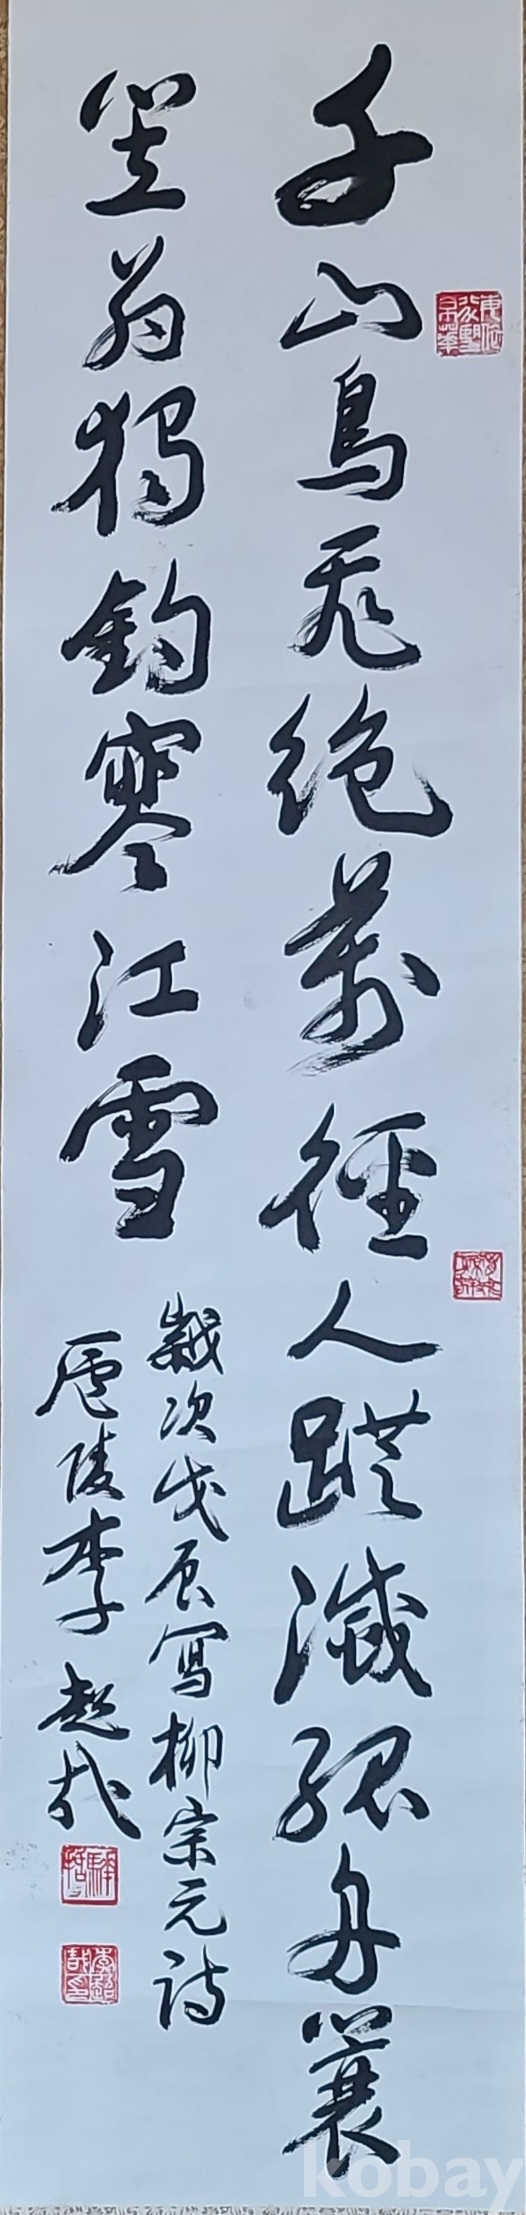 千山鳥飛絶萬徑人蹤滅孤舟蓑
笠翁獨釣寒江雪
歲次戊辰寫柳宗元詩
廬陵李超哉
kobay